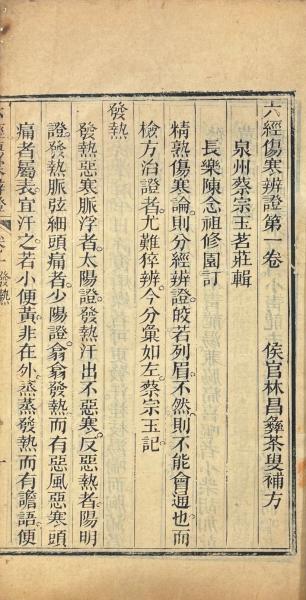 六經傷寒辨證第一卷
侯官林昌彝茶叟補方
泉州蔡宗玉茗莊輯
長樂陳念祖修園訂
精熟傷寒論則分經辨證皎若列眉不然則不能會通也而
檢方治證者尤難猝辨今分彙如左蔡宗玉記
發熱
發熱惡寒脈浮者太陽證發熱汗出不惡寒反惡熱者陽明
證發熱脈弦細頭痛者少陽證翕翕發熱而有惡風惡寒頭
痛者屬表宜汗之若小便黃非在外蒸蒸發熱而有譫語便
發熱